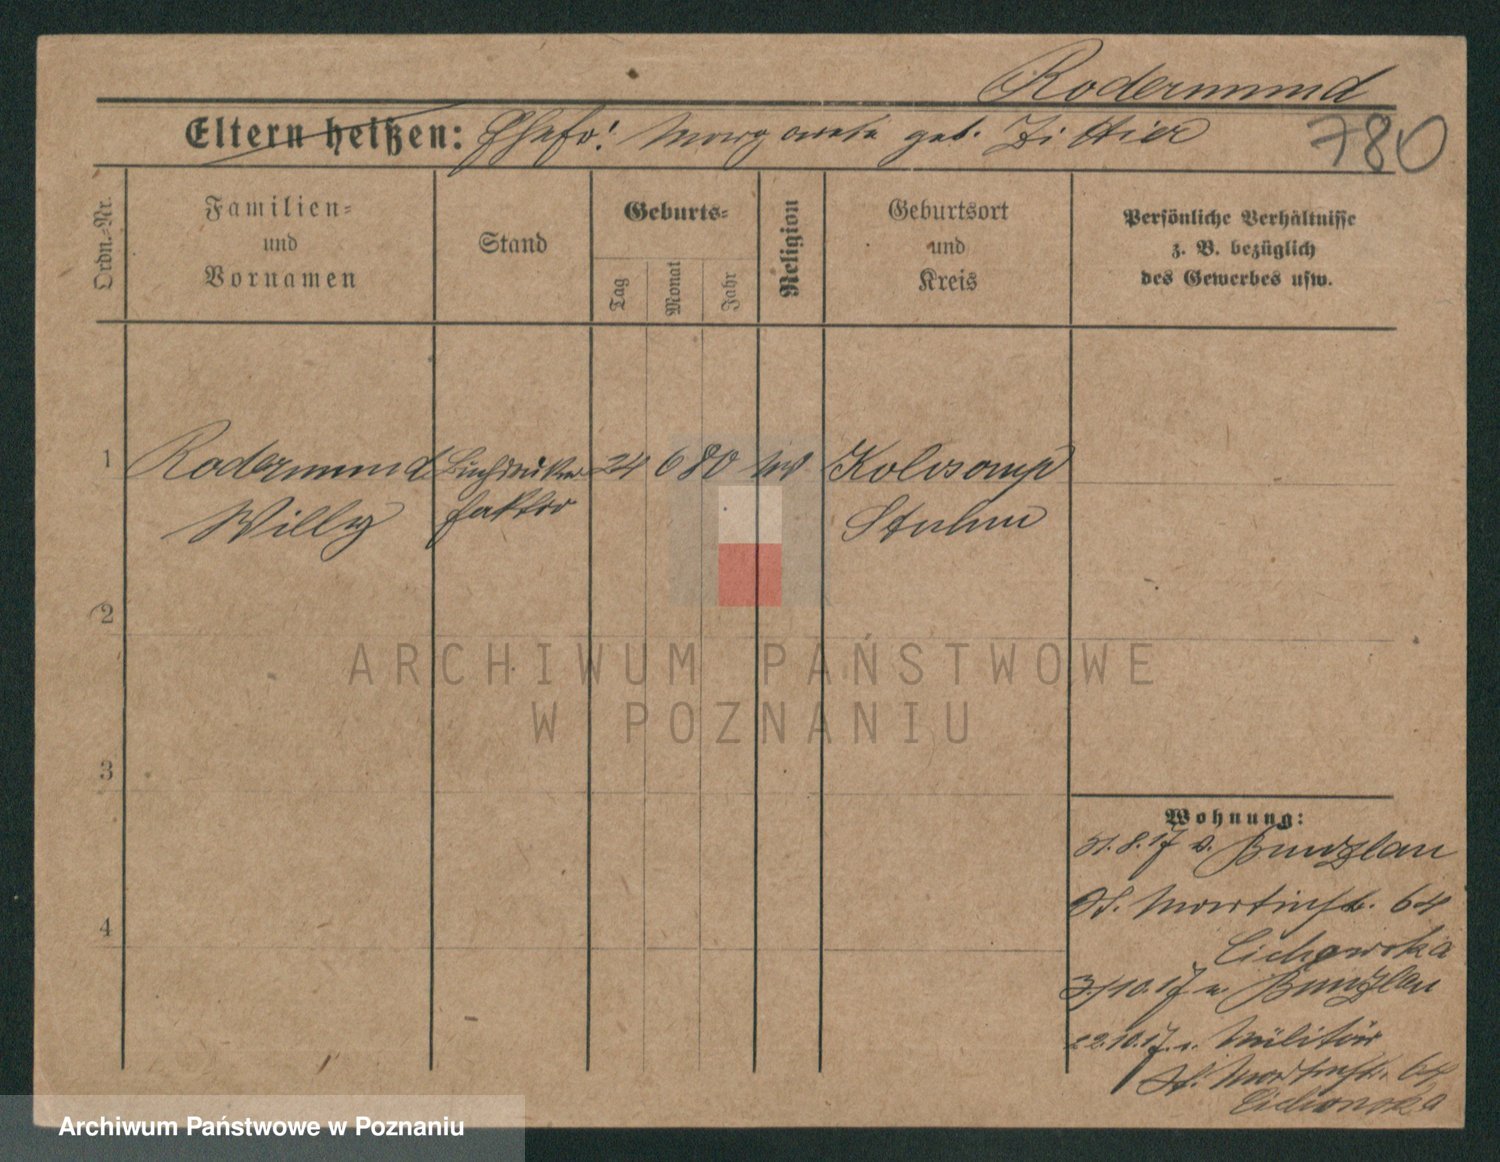 Rodermund
Eltern heißen: Ehefr: Margarete geb. Zittier
780
Ordn.-Nr.
Familien-
und
Vornamen
Stand
Geburts-
Tag
Monat
Jahr
Religion
Geburtsort
und
Kreis
Persönliche Verhältnisse
z. B. bezüglich
des Gewerbes usw.
1
Rodermund
Willy
Buchdrucker
faktor
24
6
80
Stuhm
2
3
4
ARCHIWUM PAŃSTWOWE
W POZNANIU
Wohnung:
31.8.17 v. Bunzlau
St. Martinstr. 64
Cichowska
3./10.17 n. Bunzlau
22.10.17 v. Militär
St. Martinstr. 64
Cichowska
Archiwum Państwowe w Poznaniu